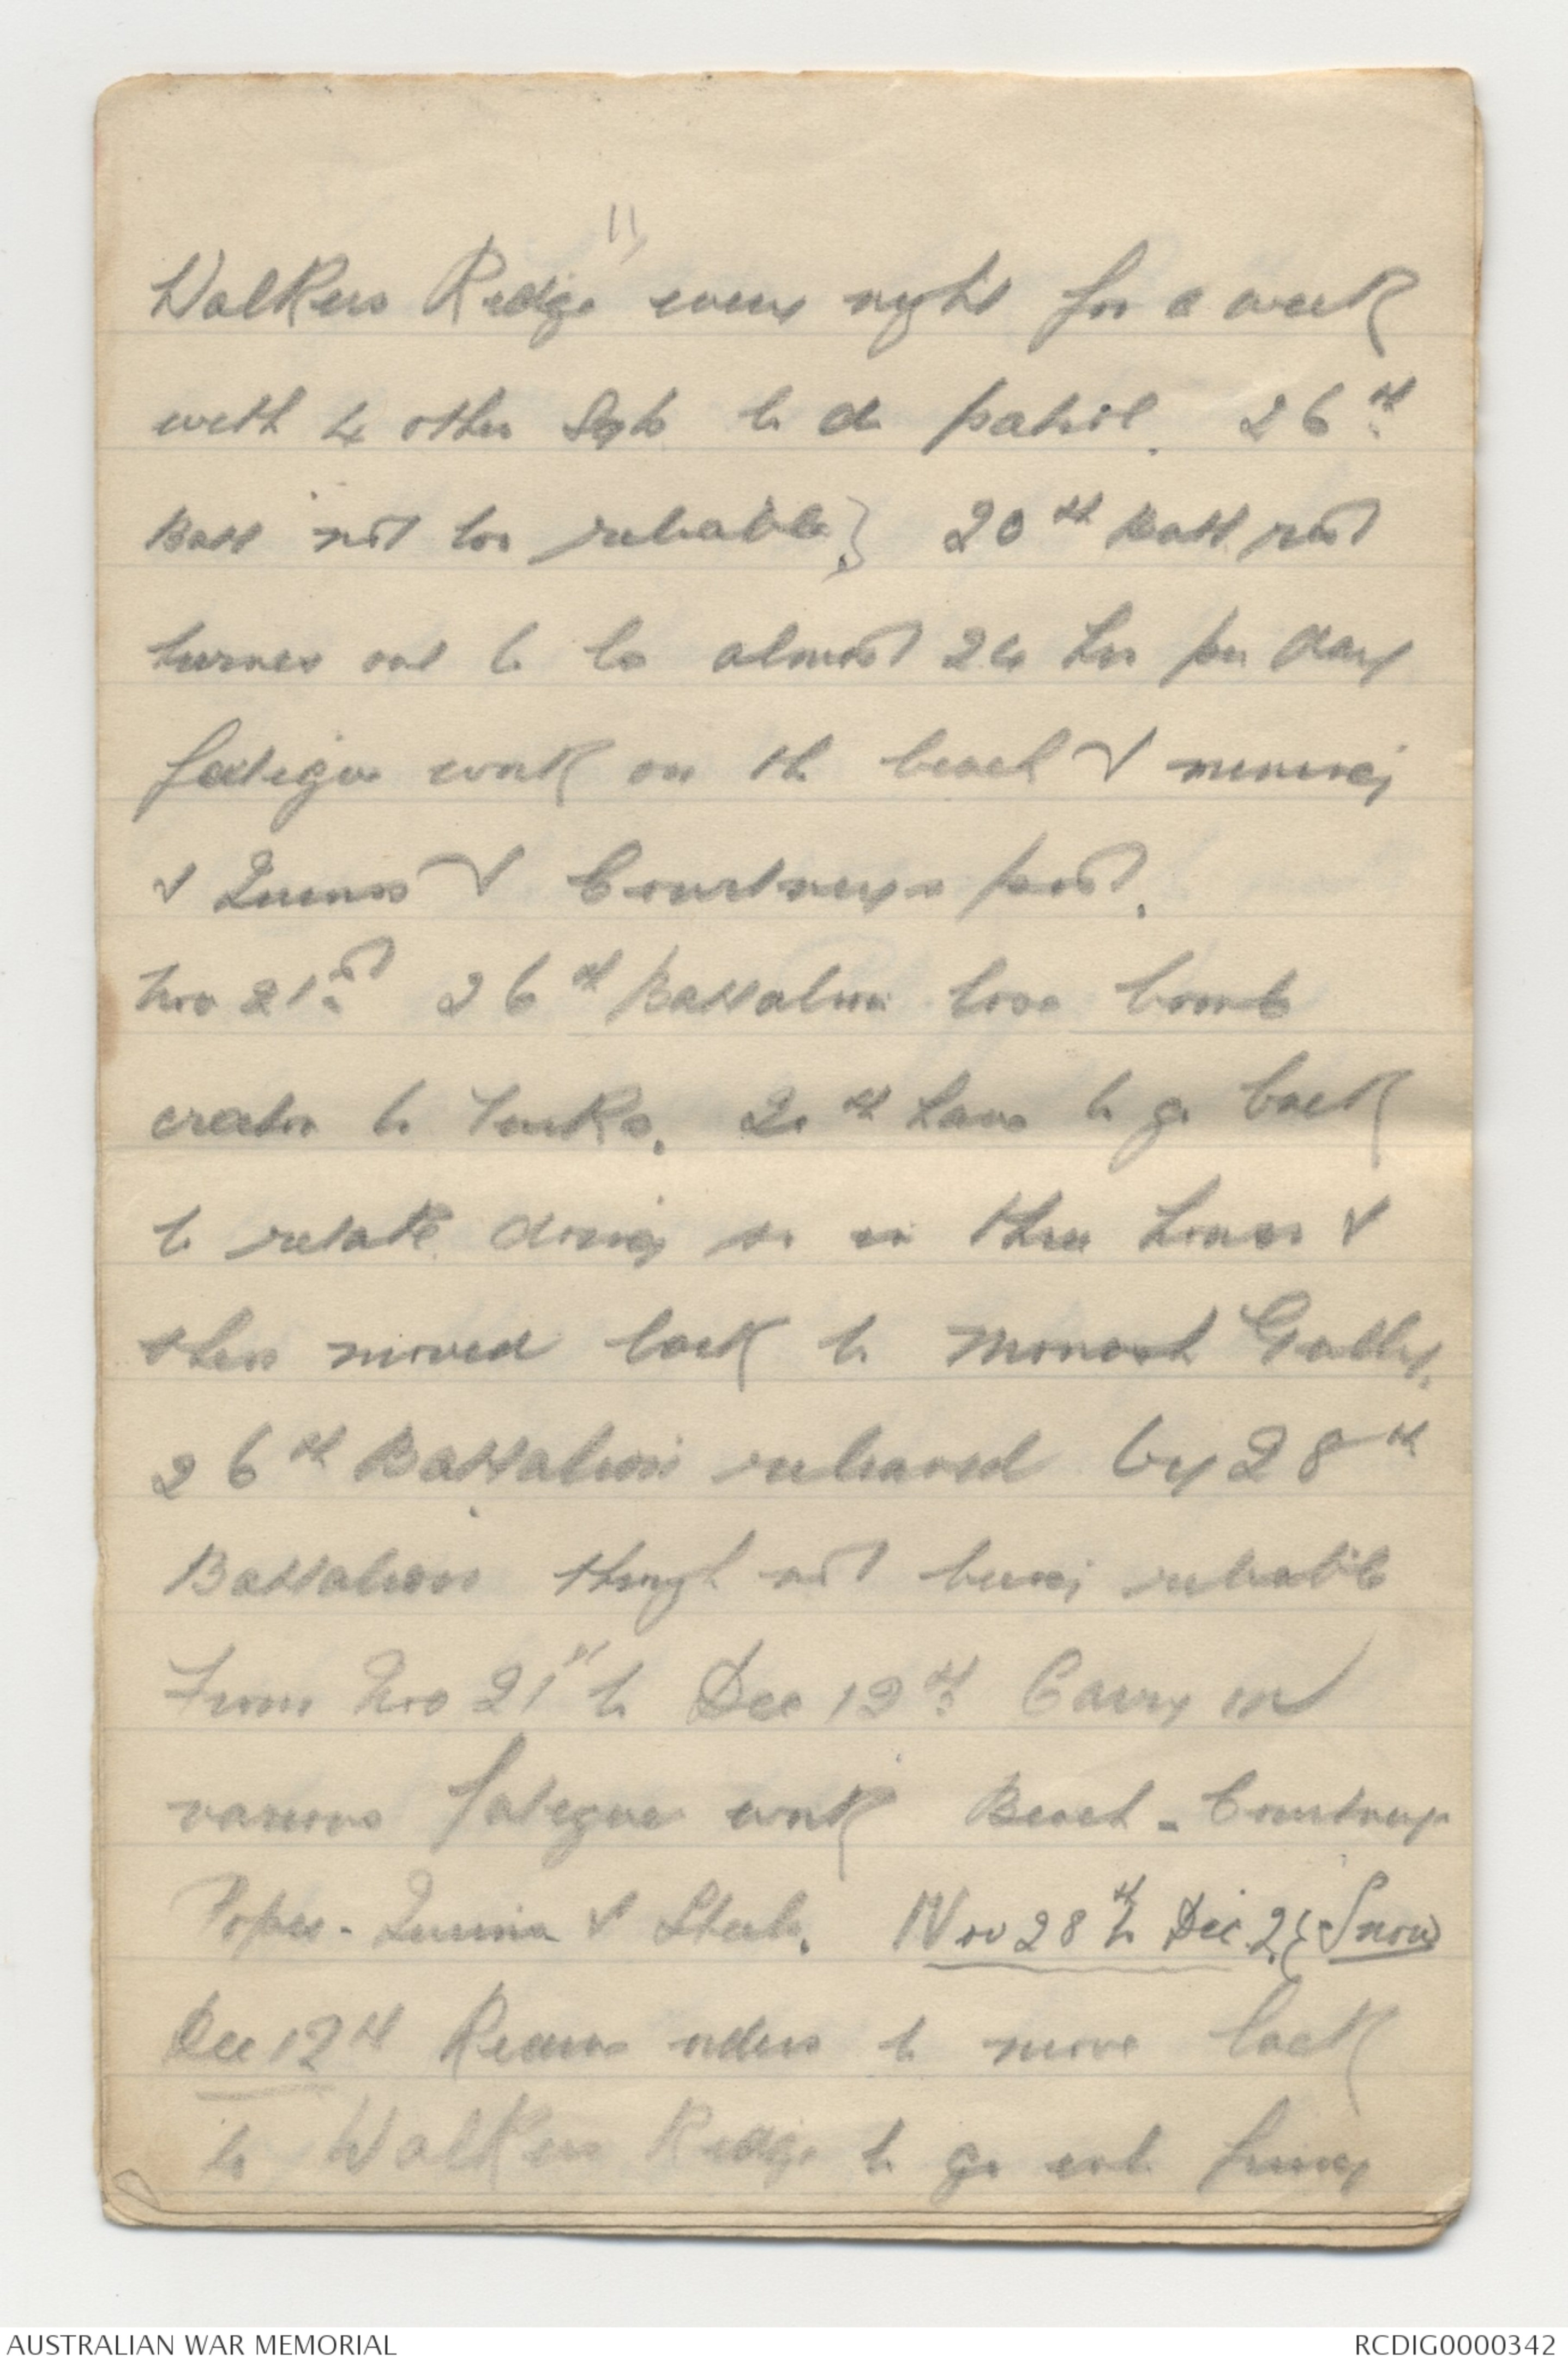 11
Walkers Ridge every night for a week
with 4 other Sgts to do patrol. 26th
Batt not too reliable} 20th Batt rest
turnes out to be almost 24 hrs per day
fatigue work on the beach & mining
& Quinns & Courtneys post.
Nov 21st 26th Battalion lose bomb
crater to Turks. 20th have to go back
to retake doing so in three hours &
then moved back to Monash Gully.
26th Battalion relieved by 28th
Battalion though not being reliable
From Nov 21st to Dec 12th Carry on
various fatigue work Beach - Courtneys
Popes - Quinns & Steels. Nov 28th to Dec 2 { Snow
Dec 12th Receive orders to move back
to Walkers Ridge to go into firing
AUSTRALIAN WAR MEMORIAL
RCDIG0000342